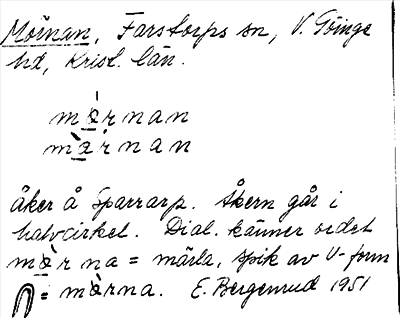 Mörnan, Farstorps sn, V. Göinge
hd, Krist. län.
mạ̈rnan
mạ̀rnan
åker å Sparrarp. Åkern går i
halvcirkel. Dial. känner ordet
mạ̈rna = märla, spik av U-form
= mạ̀rna. E. Bergenrud 1951